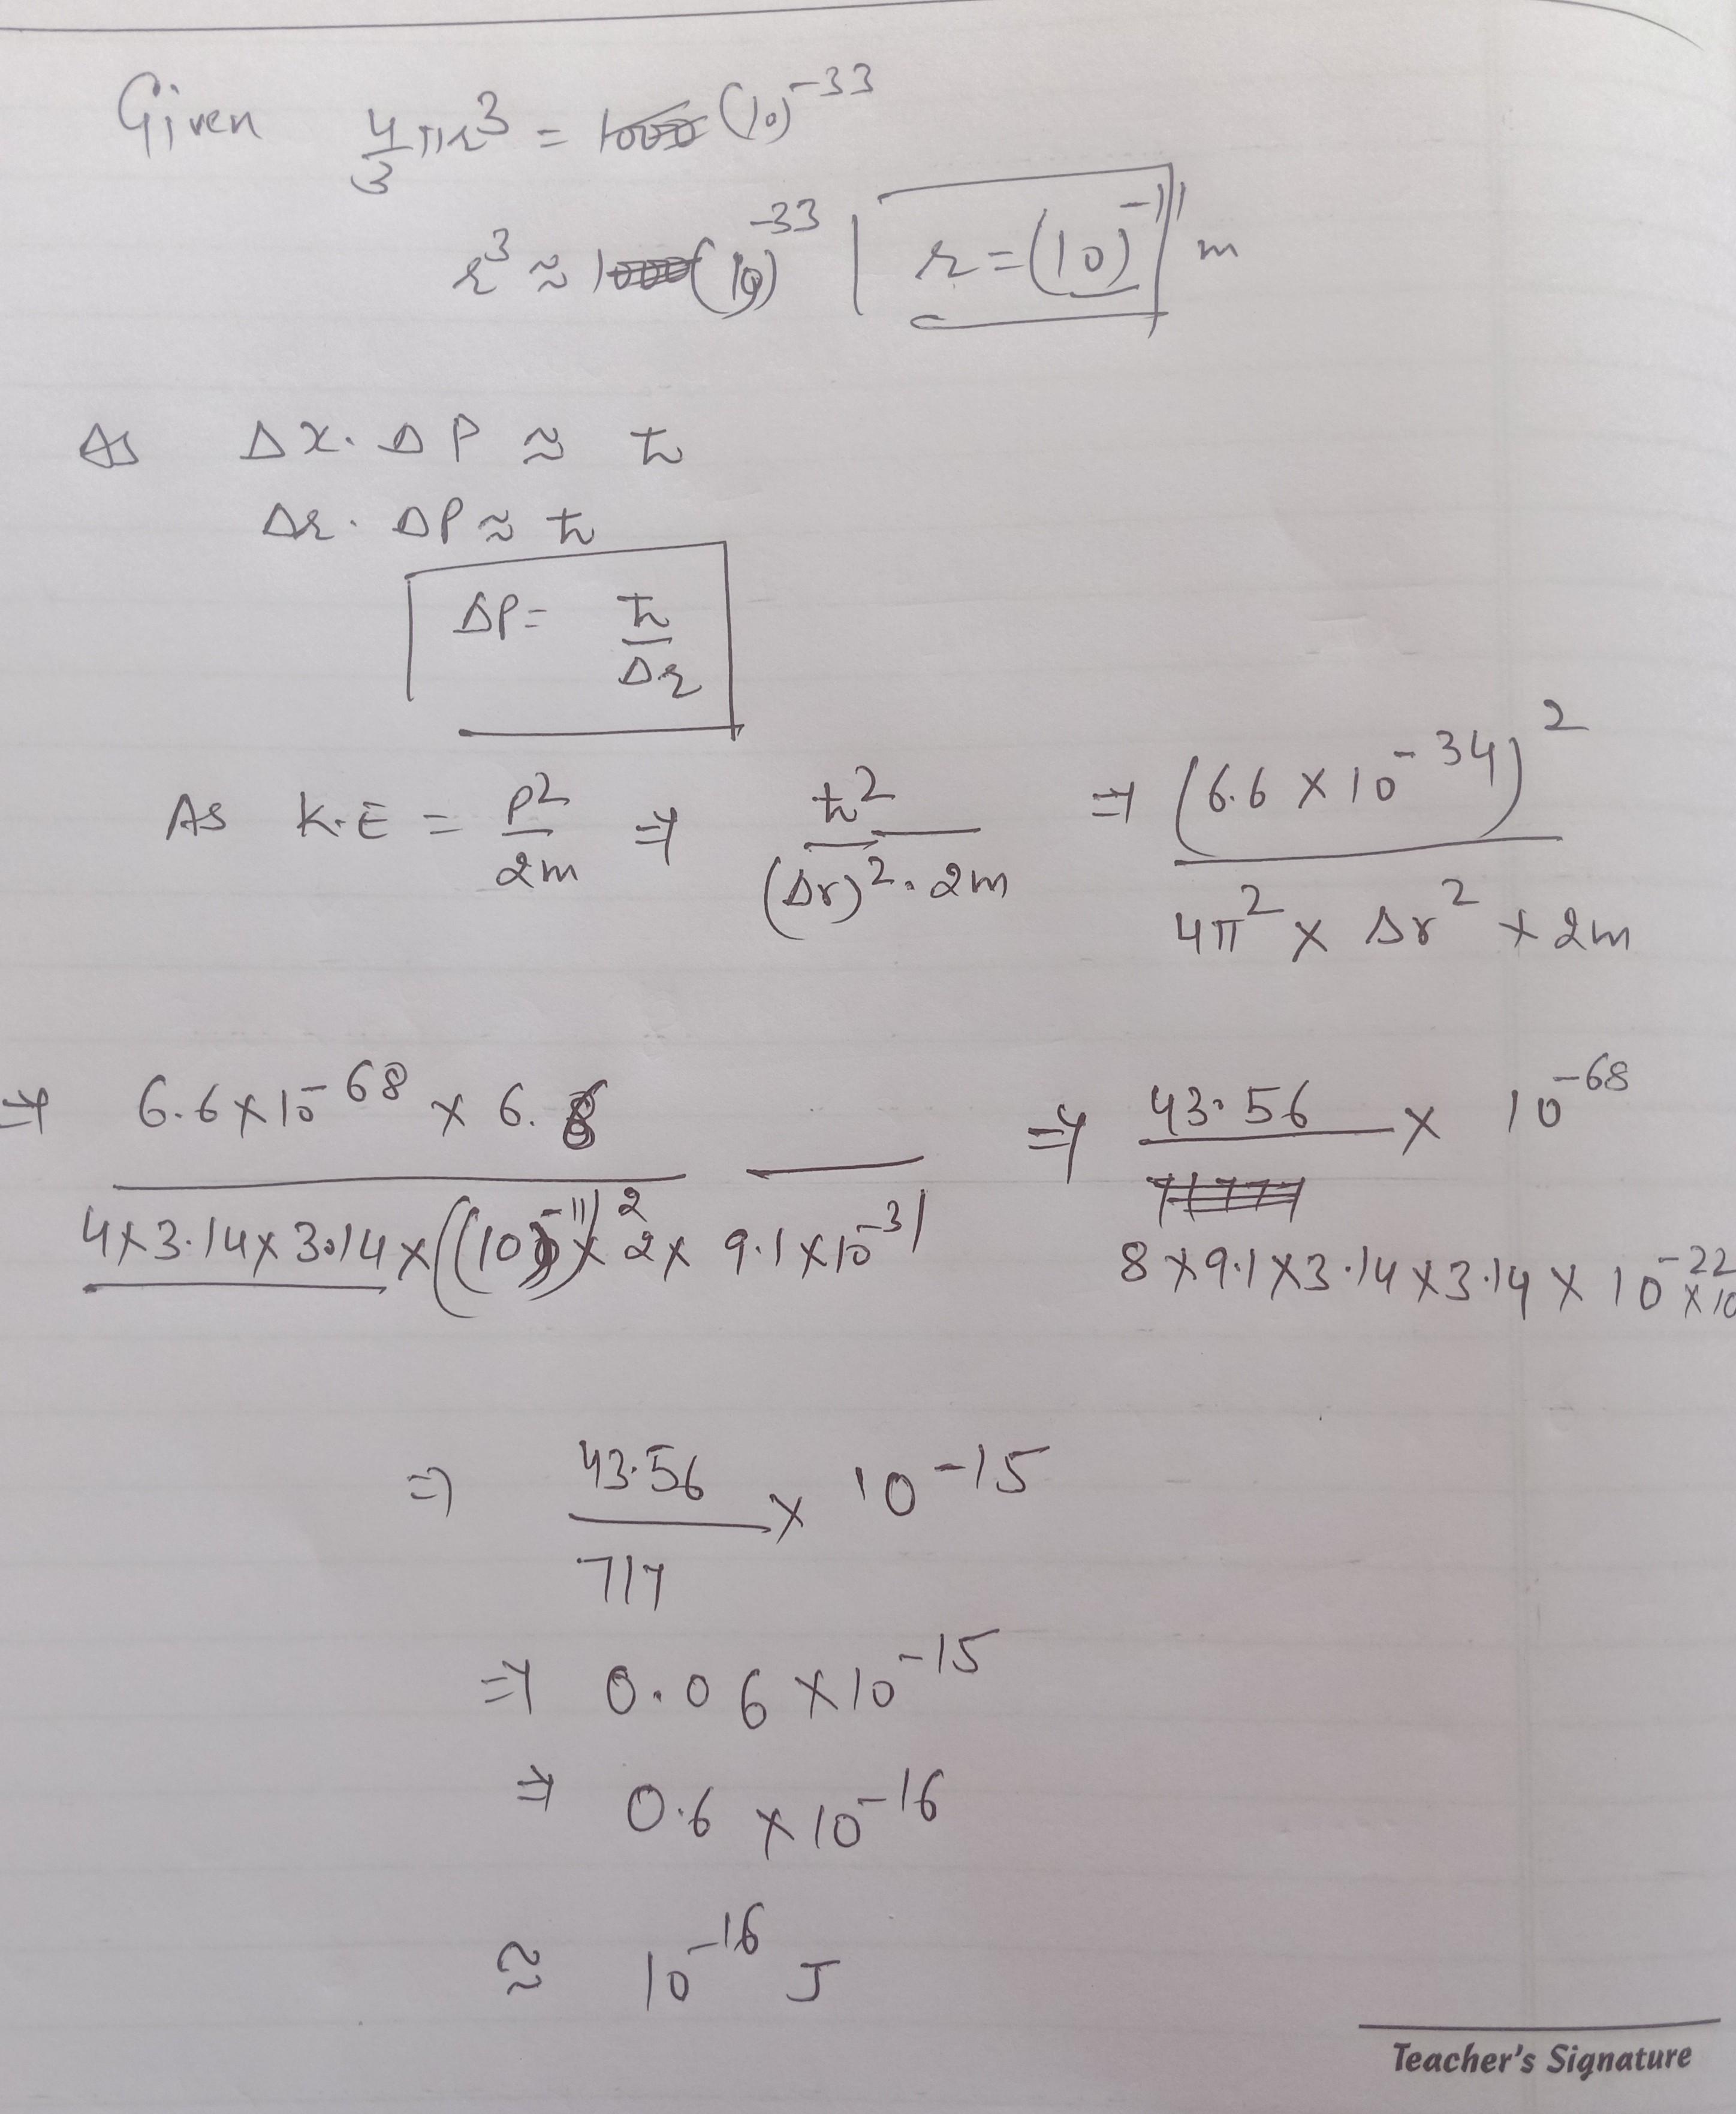 Given 4/3 πr³ = (10)⁻³³
r³ ≈ (10)⁻³³ | r = (10)⁻¹¹ m
As Δx. ΔP ≈ ħ
Δr. ΔP ≈ ħ
ΔP = ħ/Δr
As K.E = P²/2m ⇒ ħ²/(Δr)².2m ⇒ (6.6 × 10⁻³⁴)²/4π² × Δr² × 2m
⇒ 6.6×10⁻⁶⁸ × 6.6/4×3.14×3.14×((10)⁻¹¹)²×2×9.1×10⁻³¹ ⇒ 43.56/8×9.1×3.14×3.14×10⁻²²×10 × 10⁻⁶⁸
⇒ 43.56/717 × 10⁻¹⁵
⇒ 0.06 × 10⁻¹⁵
⇒ 0.6 × 10⁻¹⁶
≈ 10⁻¹⁶ J
Teacher's Signature